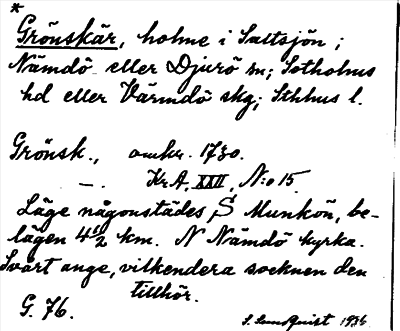 *
Grönskär, holme i Saltsjön;
Nämdö eller Djurö sn; Sotholms
hd eller Värmdö skg; Sthlms l.
Grönsk., omkr. 1730.
—. Kr A, XXII, N:o 15.
Läge någonstädes S Munkön, be-
lägen 4 1/2 km. N Nämdö kyrka.
Svårt ange, vilkendera socknen den
tillhör.
G. 76.
S. Lundquist 1936